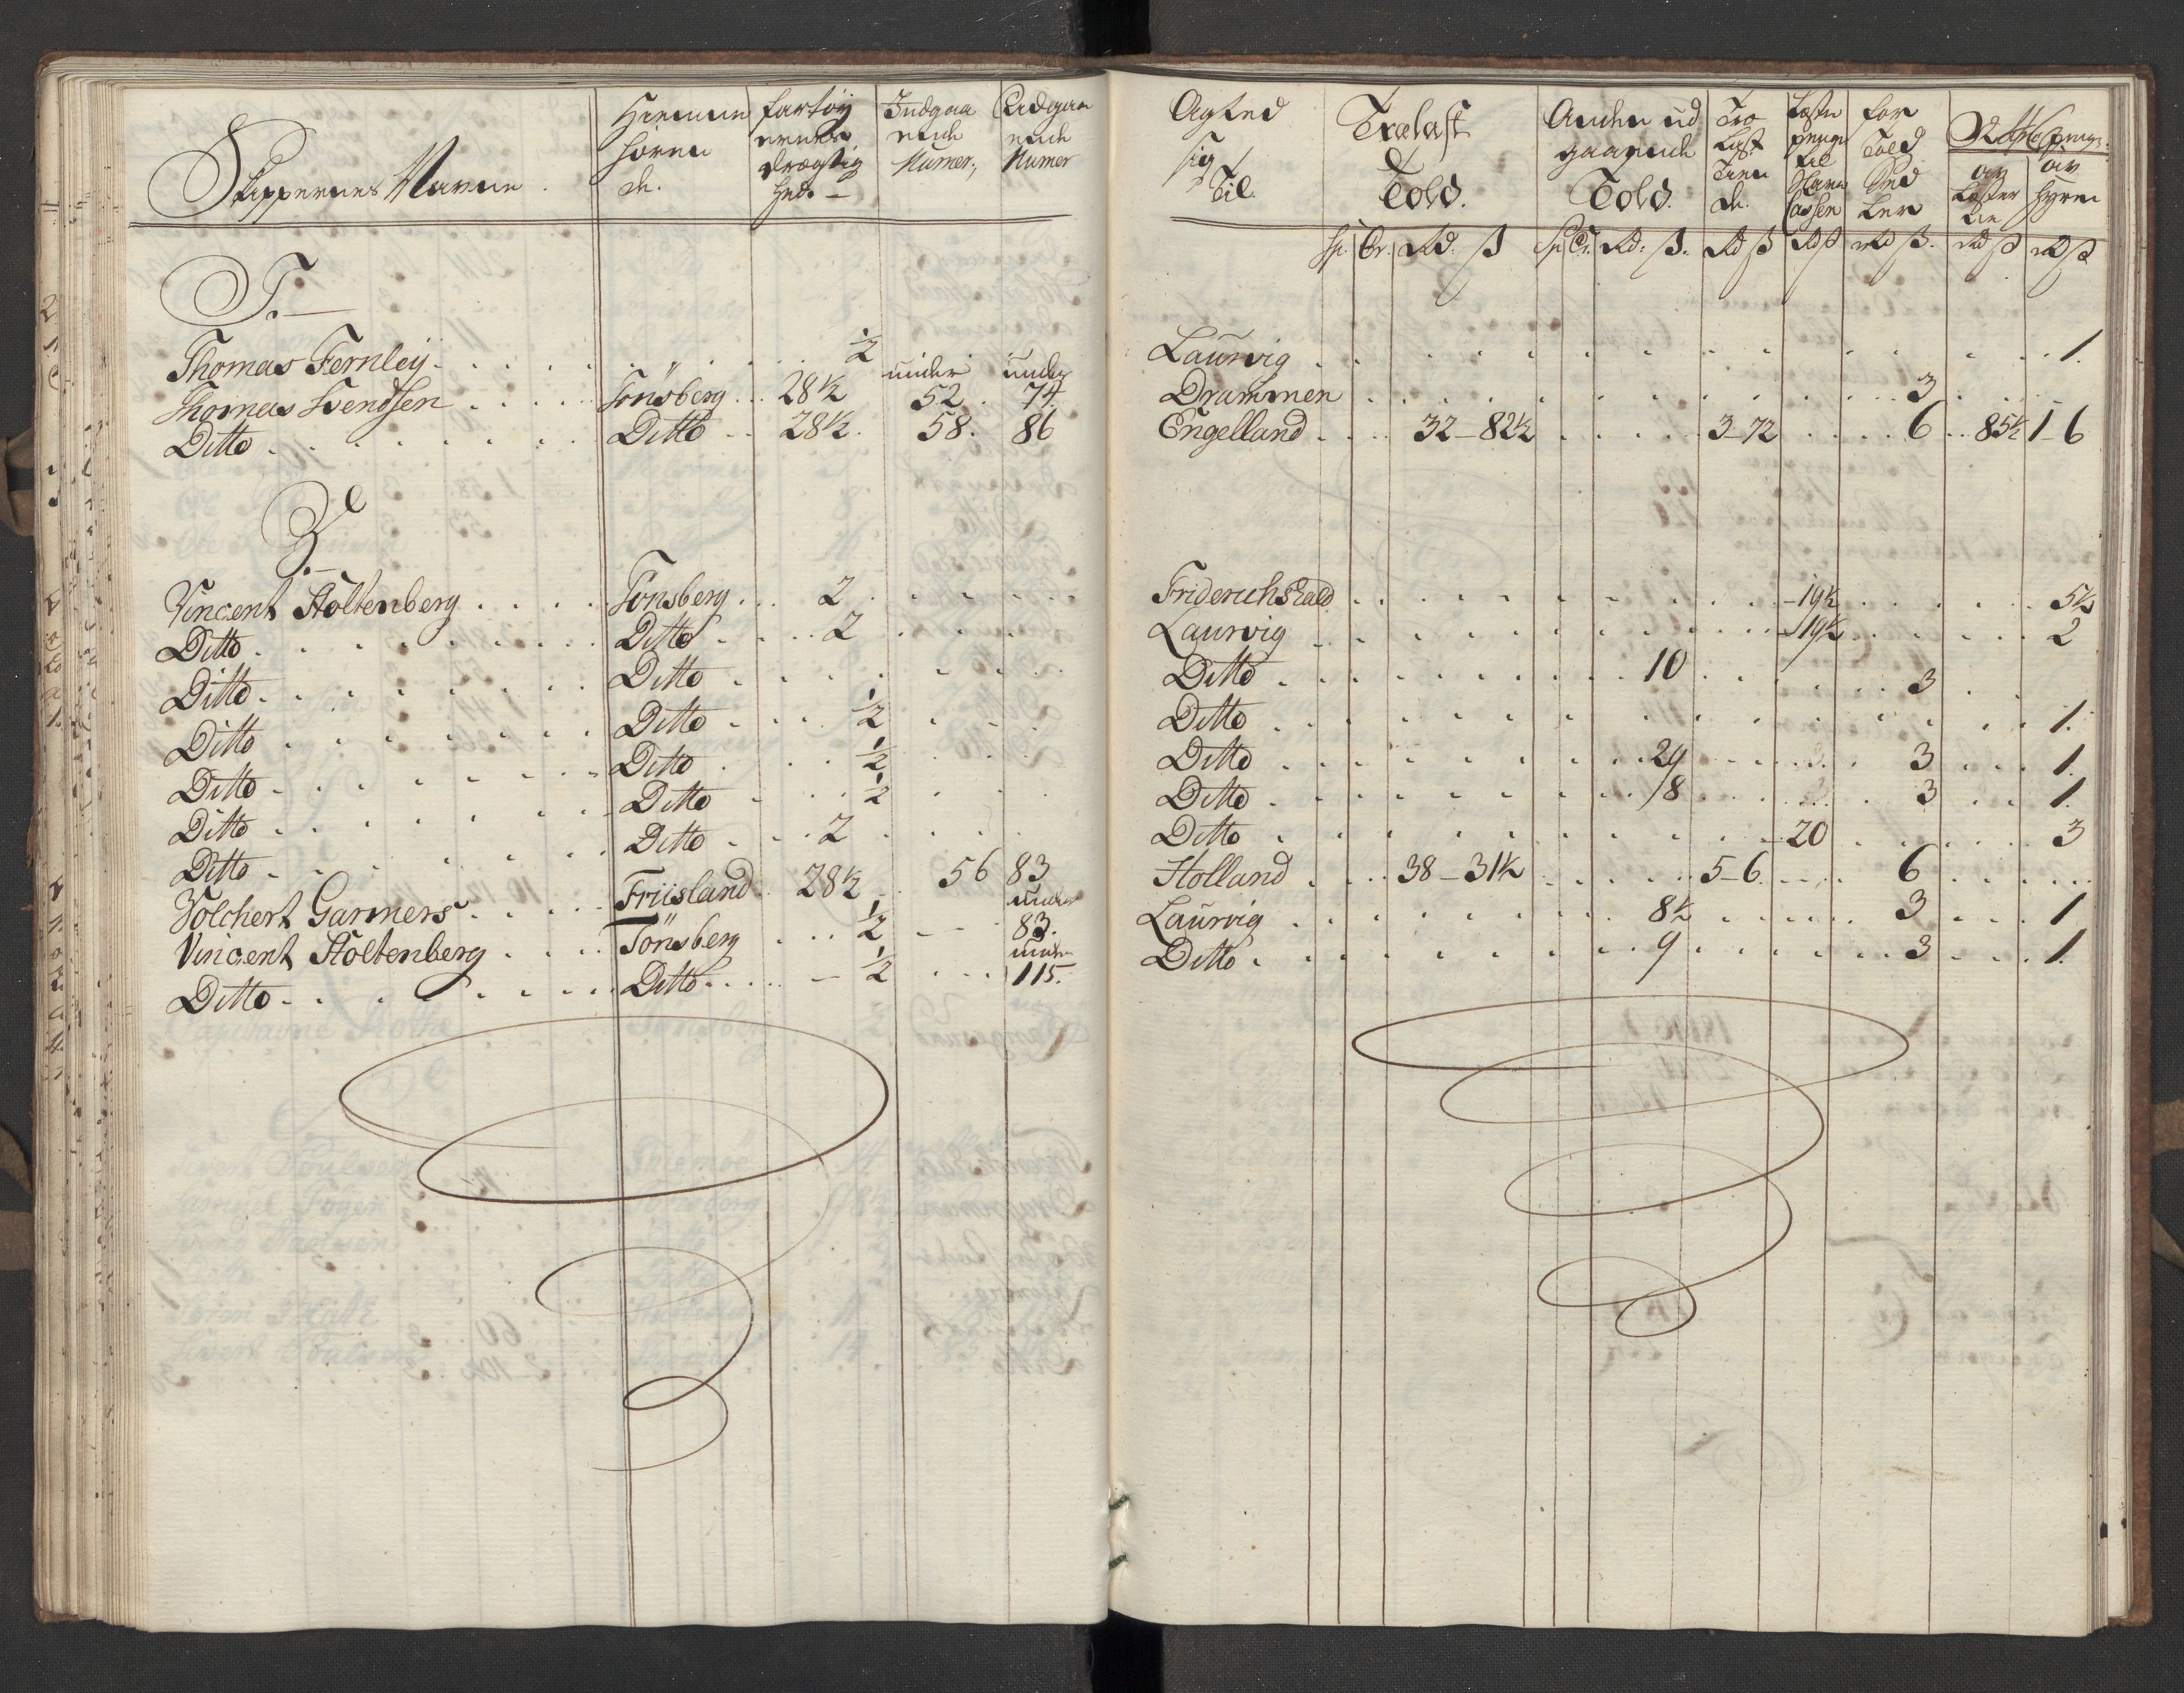 Skippernes Navne. Hiemme hören de. Fartöy ernes Drægtig hed. Indgaa ende Numer. Udgaa ende Numer
Agted sig Til. Trælast Told. Anden ud gaaende Told. Træ Last Tien de. Laste penge til Cassen For Told Sed ler av av Hyren
Sp. Or. Rd. ß Sp. Or. Rd. ß. Rd ß Rd ß Rd ß. Rd ß Rd ß
T.
Thomas Fernleÿ ½ Laurvig 1.
Thomas Svendsen Tönsberg 28½ under 52 under 74 Drammen 3
Ditto Ditto 28½ 58. 86 Engelland 32-82½ 3-72 6 85½ 1-6
V.
Vincent Stoltenberg Tönsberg 2 Friderichshald 19½ 5½
Ditto Ditto 2 Laurvig 19½ 2
Ditto Ditto Ditto 10 3
Ditto Ditto ½ Ditto 1.
Ditto Ditto ½ Ditto 29 3 1.
Ditto Ditto ½ Ditto 18 3 1.
Ditto Ditto 2 Ditto 20 3
Volchert Garmers Friisland 28½ 56 83 Holland 38-31½ 5-6 6
Vincent Stoltenberg Tönsberg ½ under 83. Laurvig 8½ 3 1
Ditto Ditto ½ under 115. Ditto 9 3 1.